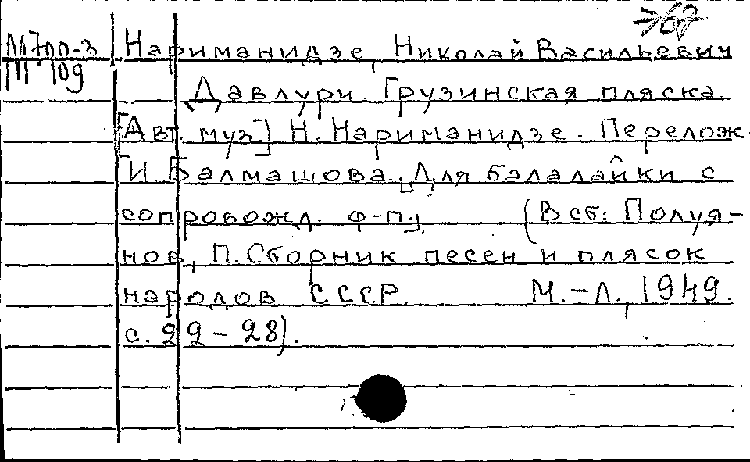 М700-3 Нариманидзе, Николай Васильевич
П 109
Давлури. Грузинская пляска.
[Авт. муз.] Н. Нариманидзе. Перелож.
И. Балмашова. Для балалайки с
сопровожд. ф-п.] (В сб: Полуя-
нов, П. Сборник песен и плясок
народов СССР. М.-Л., 1949.
с. 22-28).